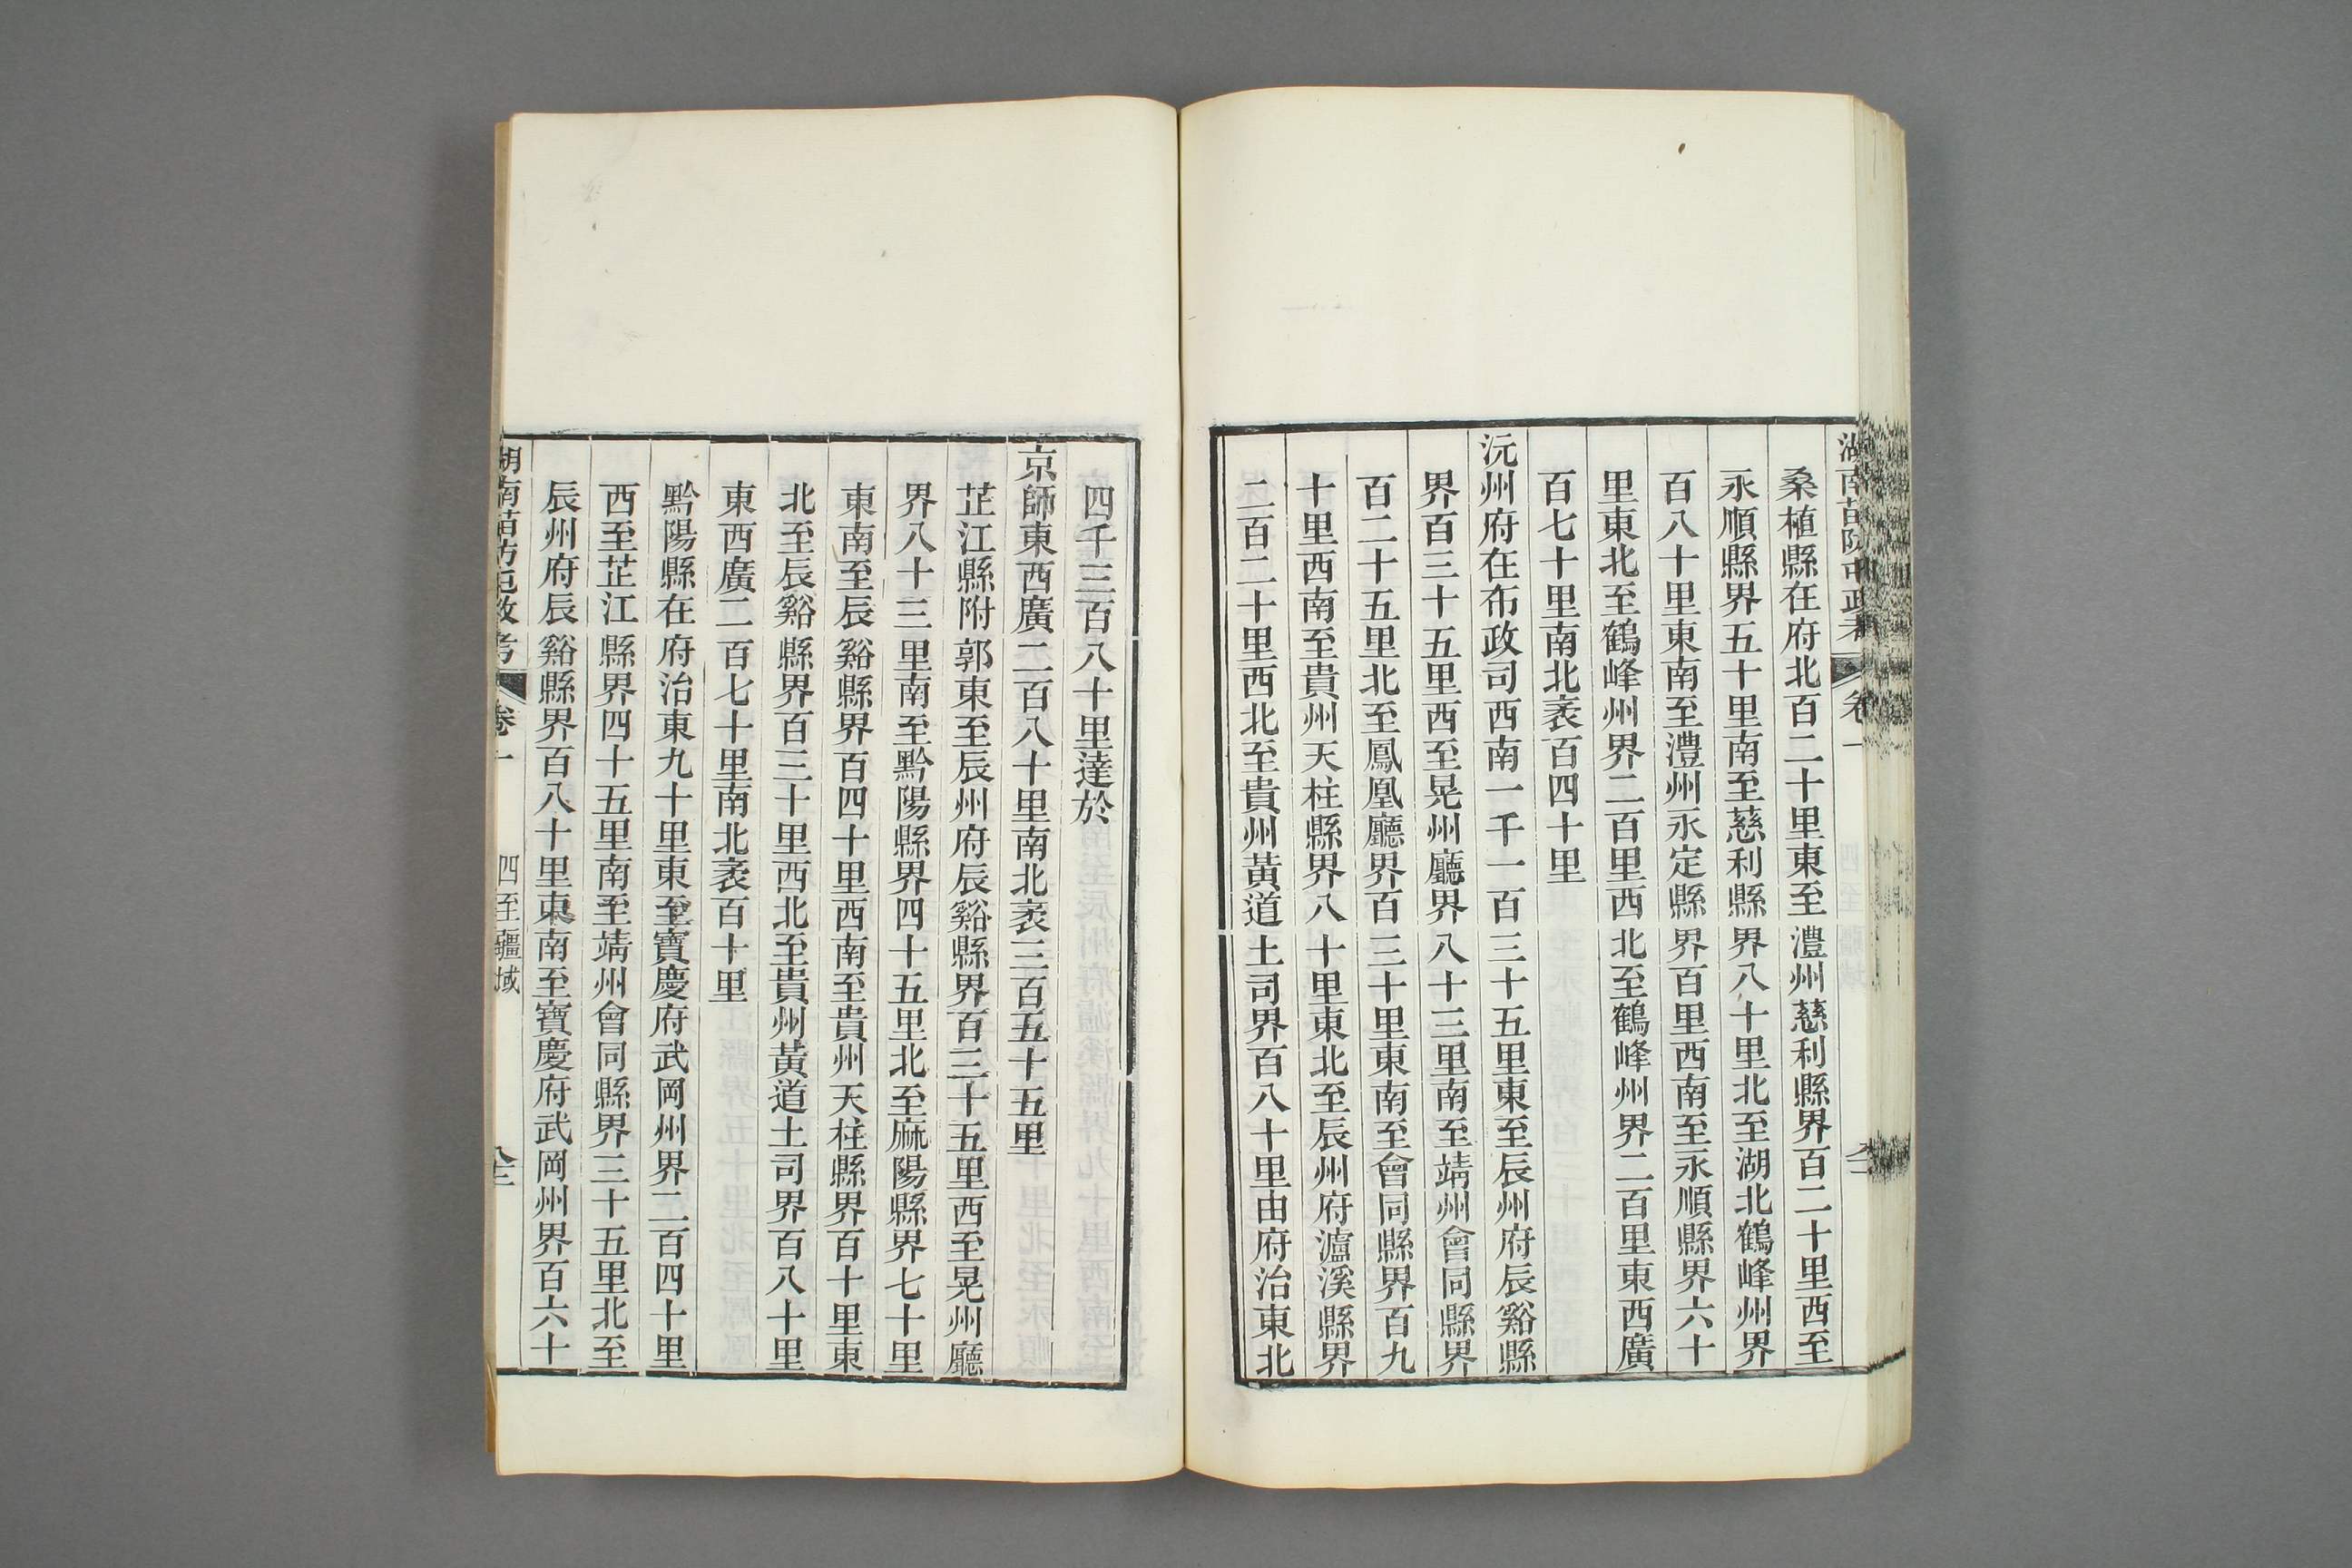 桑植縣在府北百二十里東至澧州慈利縣界百二十里西至
永順縣界五十里南至慈利縣界八十里北至湖北鶴峰州界
百八十里東南至澧州永定縣界百里西南至永順縣界六十
里東北至鶴峰州界二百里西北至鶴峰州界二百里東西廣
百七十里南北袤百四十里
沅州府在布政司西南一千一百三十五里東至辰州府辰谿縣
界百三十五里西至晃州廳界八十三里南至靖州會同縣界
百二十五里北至鳳凰廳界百三十里東南至會同縣界百九
十里西南至貴州天柱縣界八十里東北至辰州府瀘溪縣界
二百二十里西北至貴州黃道土司界百八十里由府治東北
四千三百八十里達於
京師東西廣二百八十里南北袤三百五十五里
芷江縣附郭東至辰州府辰谿縣界百三十五里西至晃州廳
界八十三里南至黔陽縣界四十五里北至麻陽縣界七十里
東南至辰谿縣界百四十里西南至貴州天柱縣界百十里東
北至辰谿縣界百三十里西北至貴州黃道土司界百八十里
東西廣二百七十里南北袤百十里
黔陽縣在府治東九十里東至寶慶府武岡州界二百四十里
西至芷江縣界四十五里南至靖州會同縣界三十五里北至
辰州府辰谿縣界百八十里東南至寶慶府武岡州界百六十
湖南苗防屯政考 卷一 四至疆域